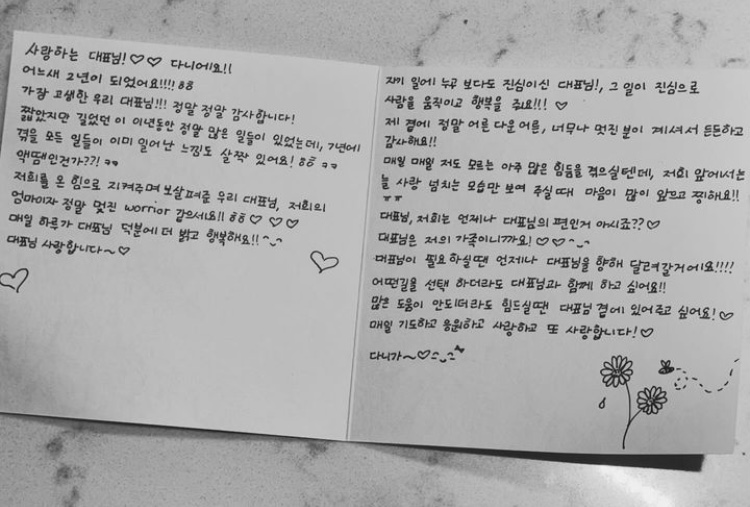 사랑하는 대표님!♡♡ 다니에요!!
어느새 2년이 되었어요!!!! ㅎㅎ
가장 고생한 우리 대표님!!! 정말 정말 감사합니다!
짧았지만 길었던 이 이년동안 정말 많은 일들이 있었는데, 7년에
겪을 모든 일들이 이미 일어난 느낌도 살짝 있어요! ㅎㅎ ㅋㅋ
액땜인건가??! ㅋㅋ
저희를 온 힘으로 지켜주며 보살펴준 우리 대표님, 저희의
엄마이자 정말 멋진 worrior 같으세요!! ㅎㅎ ♡ ♡ ♡
매일 하루가 대표님 덕분에 더 밝고 행복해요!! ^_^
대표님 사랑합니다~♡
자기 일에 누구 보다도 진심이신 대표님!, 그 일이 진심으로
사람을 움직이고 행복을 줘요!!! ♡
제 곁에 정말 어른 다운 어른, 너무나 멋진 분이 계셔서 든든하고
감사해요!!
매일 매일 저도 모르는 아주 많은 힘듦을 겪으실텐데, 저희 앞에서는
늘 사랑 넘치는 모습만 보여 주실때 마음이 많이 아프고 찡해요!!
ㅠㅠ
대표님, 저희는 언제나 대표님의 편인거 아시죠?? ♡
대표님은 저의 가족이니까요! ♡♡ ^_^
대표님이 필요하실땐 언제나 대표님을 향해 달려갈거에요!!!!
어떤길을 선택 하더라도 대표님과 함께 하고 싶어요!!
많은 도움이 안되더라도 힘드실땐 대표님 곁에 있어주고 싶어요! ♡
매일 기도하고 응원하고 사랑하고 또 사랑합니다! ♡
다니가~♡